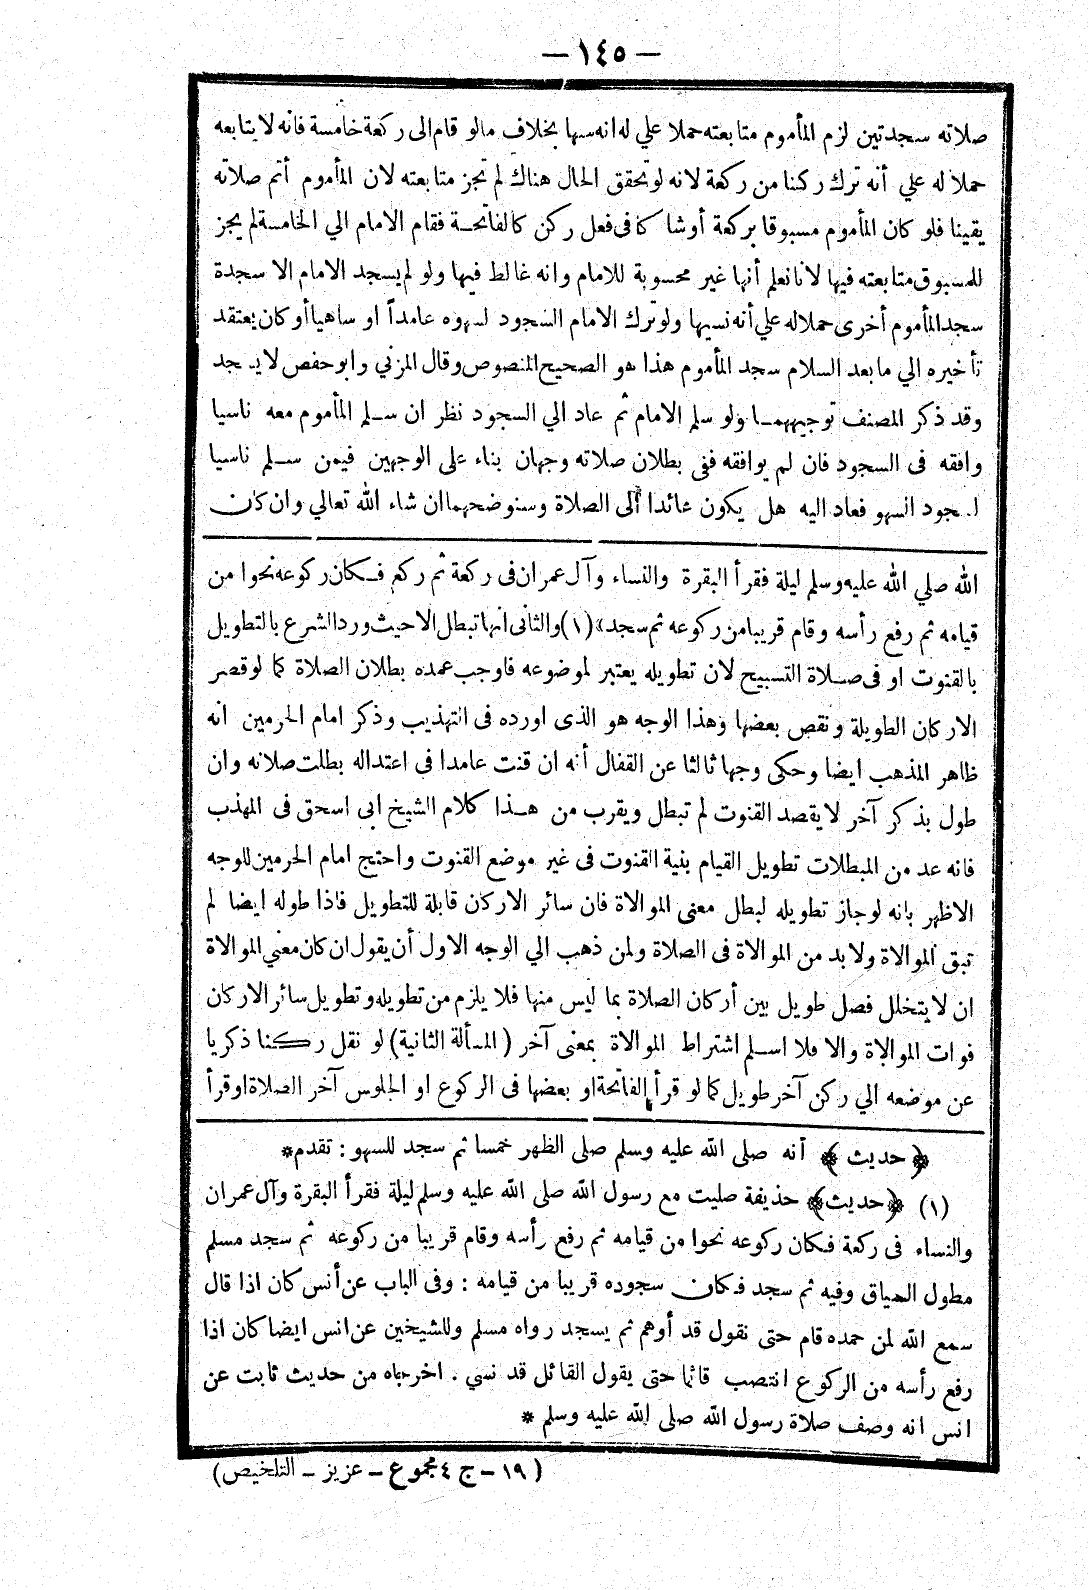 — ١٤٥ —
صلاته سجدتين لزم المأموم متابعته حملا علي له انه سها بخلاف مالو قام الى ركعة خامسة فانه لا يتابعه
حملا له علي أنه ترك ركنا من ركعة لانه لو تحقق الحال هناك لم تجز متابعته لان المأموم أتم صلاته
يقينا فلو كان المأموم مسبوقا بركعة أو شاكا في فعل ركن كالفاتحة فقام الامام الي الخامسة لم يجز
للمسبوق متابعته فيها لانا نعلم أنها غير محسوبة للامام وانه غالط فيها ولو لم يسجد الامام الا سجدة
سجد المأموم أخرى حملا له علي أنه نسيها ولو ترك الامام السجود لسهوه عامداً او ساهيا أو كان يعتقد
تأخيره الي ما بعد السلام سجد المأموم هذا هو الصحيح المنصوص وقال المزني وابو حفص لا يسجد
وقد ذكر المصنف توجيههما ولو سلم الامام ثم عاد الي السجود نظر ان سلم المأموم معه ناسيا
وافقه في السجود فان لم يوافقه ففي بطلان صلاته وجهان بناء على الوجهين فيمن سلم ناسيا
لسجود السهو فعاد اليه هل يكون عائدا الى الصلاة وسنوضحهما ان شاء الله تعالي وان كان
الله صلي الله عليه وسلم ليلة فقرأ البقرة والنساء وآل عمران في ركعة ثم ركع فكان ركوعه نحوا من
قيامه ثم رفع رأسه وقام قريبا من ركوعه ثم سجد» (١) والثاني انها تبطل الا حيث ورد الشرع بالتطويل
بالقنوت او في صلاة التسبيح لان تطويله يعتبر لموضوعه فاوجب عمده بطلان الصلاة كما لو قصر
الاركان الطويلة ونقص بعضها وهذا الوجه هو الذى اورده في التهذيب وذكر امام الحرمين انه
ظاهر المذهب ايضا وحكى وجها ثالثا عن القفال أنه ان قنت عامدا في اعتداله بطلت صلاته وان
طول بذكر آخر لا يقصد القنوت لم تبطل ويقرب من هذا كلام الشيخ ابى اسحق في المهذب
فانه عد من المبطلات تطويل القيام بنية القنوت في غير موضع القنوت واحتج امام الحرمين للوجه
الاظهر بانه لو جاز تطويله لبطل معنى الموالاة فان سائر الاركان قابلة للتطويل فاذا طوله ايضا لم
تبق الموالاة ولا بد من الموالاة في الصلاة ولمن ذهب الي الوجه الاول أن يقول ان كان معني الموالاة
ان لا يتخلل فصل طويل بين أركان الصلاة بما ليس منها فلا يلزم من تطويله وتطويل سائر الاركان
فوات الموالاة والا فلا اسلم اشتراط الموالاة بمعنى آخر (المسألة الثانية) لو نقل ركنا ذكريا
عن موضعه الي ركن آخر طويل كما لو قرأ الفاتحة او بعضها في الركوع او الجلوس آخر الصلاة او قرأ
﴿حديث﴾ أنه صلى الله عليه وسلم صلى الظهر خمسا ثم سجد للسهو : تقدم*
(١) ﴿حديث﴾ حذيفة صليت مع رسول الله صلى الله عليه وسلم ليلة فقرأ البقرة وآل عمران
والنساء في ركعة فكان ركوعه نحوا من قيامه ثم رفع رأسه وقام قريبا من ركوعه ثم سجد مسلم
مطول السياق وفيه ثم سجد فكان سجوده قريبا من قيامه : وفي الباب عن أنس كان اذا قال
سمع الله لمن حمده قام حتى نقول قد أوهم ثم يسجد رواه مسلم وللشيخين عن انس ايضا كان اذا
رفع رأسه من الركوع انتصب قائما حتى يقول القائل قد نسي . اخرجاه من حديث ثابت عن
انس انه وصف صلاة رسول الله صلى الله عليه وسلم *
( ١٩ – ج ٤ مجموع – عزيز – التلخيص)